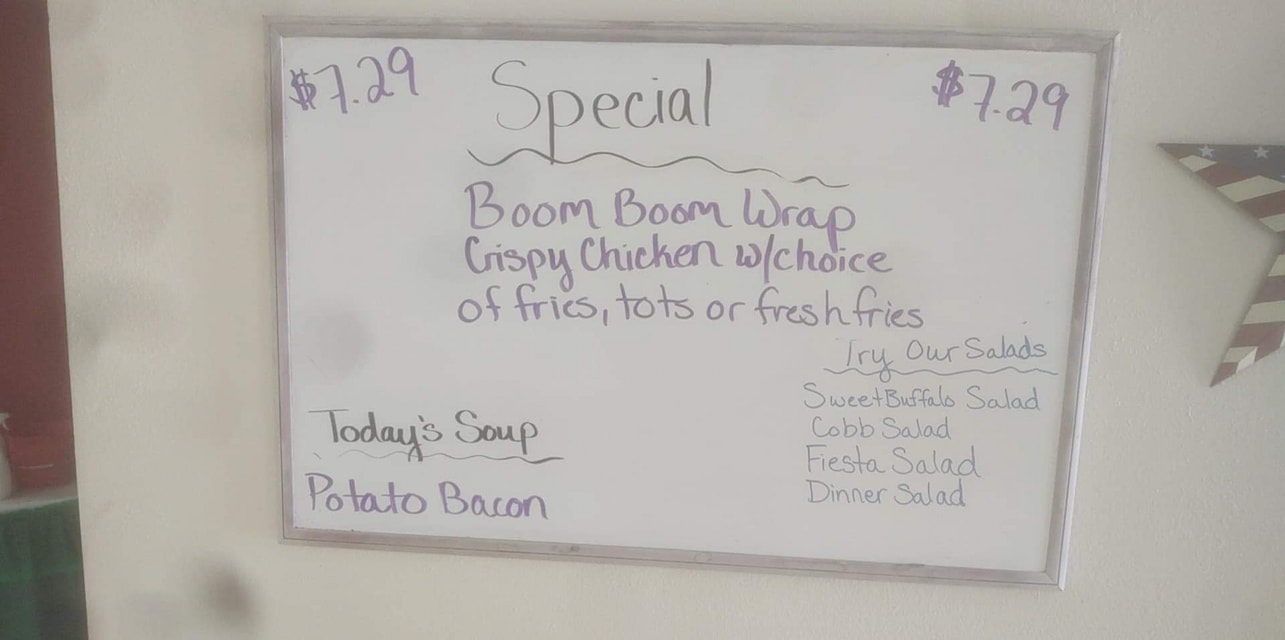 $7.29 Special $7.29
Boom Boom Wrap
Crispy Chicken w/choice
of fries, tots or fresh fries
Try Our Salads
Sweet Buffalo Salad
Cobb Salad
Fiesta Salad
Dinner Salad
Today's Soup
Potato Bacon